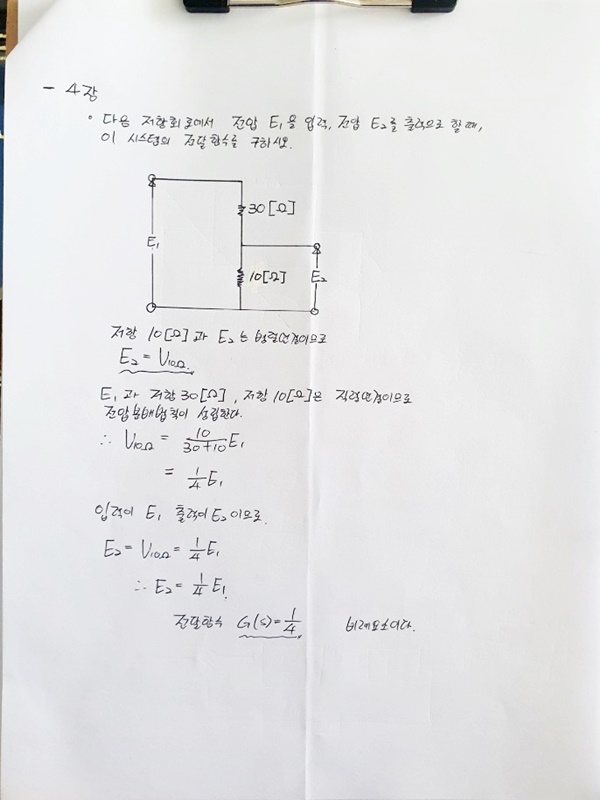 - 4장
• 다음 저항회로에서 전압 E₁을 입력, 전압 E₂를 출력으로 할 때,
이 시스템의 전달함수를 구하시오.
30[Ω]
E₁
10[Ω] E₂
저항 10[Ω]과 E₂는 병렬연결이므로
E₂ = V₁₀Ω.
E₁과 저항 30[Ω], 저항 10[Ω]은 직렬연결이므로
전압분배법칙이 성립한다.
∴ V₁₀Ω = 10/(30+10) E₁
= 1/4 E₁
입력이 E₁ 출력이 E₂이므로.
E₂ = V₁₀Ω = 1/4 E₁
∴ E₂ = 1/4 E₁.
전달함수 G(s) = 1/4 비례요소이다.